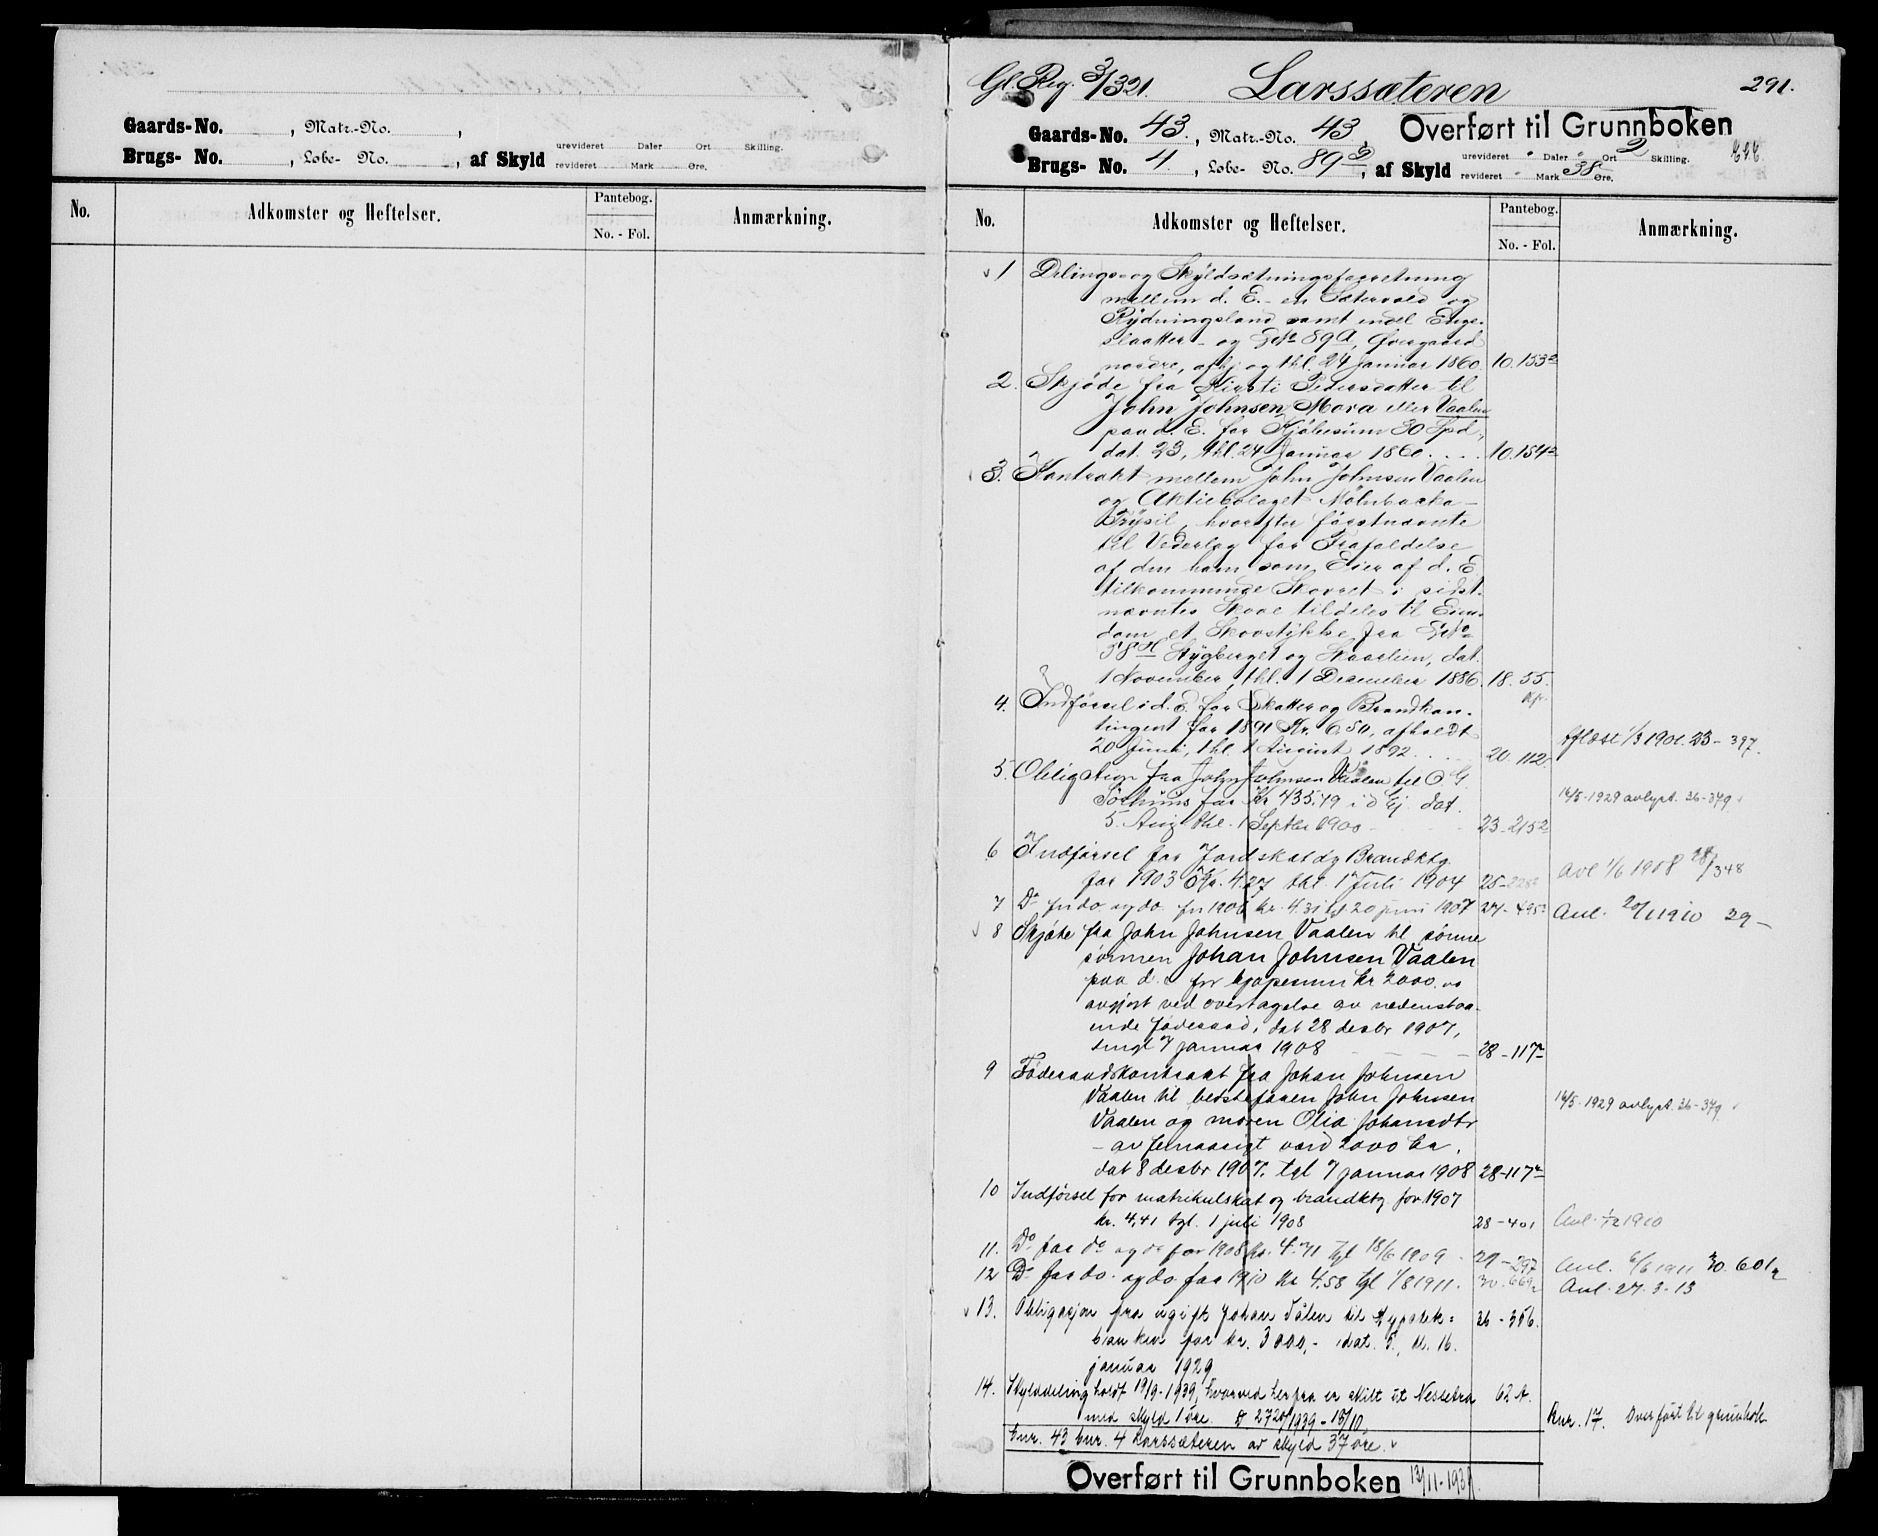 Gaards-No. , Matr.-No. ,
Brugs- No. , Løbe- No. , af Skyld urevideret Daler Ort Skilling.
revideret Mark Øre.
No. Adkomster og Heftelser. Pantebog. No. - Fol. Anmærkning.
Gl. Reg. 3/321. Larssæteren 291.
Gaards-No. 43., Matr.-No. 43, Overført til Grunnboken
Brugs- No. 4., Løbe- No. 89, af Skyld urevideret " Daler " Ort 2 Skilling.
revideret " Mark 38 Øre.
No. Adkomster og Heftelser. Pantebog. No. - Fol. Anmærkning.
1 Delings- og Skyldsætningsforretning
mellem d. E. - en Sætervold og
Rydningsland samt endel Enge-
slaatter - og 89 a, Øvergaard
nordre, afhj. og thl. 24 Januar 1860 10.153
2. Skjøde fra Kirsti Pedersdatter til
John Johnsen Mora eller Vaalen
paa d. E. for Kjøbesum 30 Spd.,
dat. 23, thl. 24 Januar 1860. . . . 10.154
3. Kontrakt mellem John Johnsen Vaalen
og Aktiebolaget Mölnbacka-
Trysil, hvorefter førstnævnte
til Vederlag for Frafaldelse
af den ham som Eier af d. E
tilkommende Skovret i sidst-
nævntes Skove tildeles til Eien-
dom et Skovstykke fra
58 Stygberget og Skaarlien, dat.
1 November, thl. 1 December 1886. 18. 55.
4. Indførsel i d. E. for Skatter og Brandkon-
tingent for 1891 Kr. 6.50, afholdt
20 Juni, thl. 1 August 1892. . . . 20. 112. Aflæst 1/3 1901. 23-397.
5. Obligation fra John Johnsen Vaalen til O G
for Kr 435.19 i d Ej. dat.
5. Aug thl. 1 Septbr 1900 23-215 14/5-1929 avlyst. 36-379
6 Indførsel for Jordskat og Brandktg
for 1903 Kr. 4.27 thl. 1 Juli 1904 25- Avl 1/6 1908 28/348
7 Do for do. og do. for 1906 kr. 4.31 tgl 20 juni 1907 27-495 Avl. 20/1 1910 29-
8 Skjøte fra John Johnsen Vaalen til sønne
sønnen Johan Johnsen Vaalen
paa d. e for kjøpesum kr 2000. -
avgjort ved overtagelse av nedenstaa-
ende føderaad, dat 28 desbr 1907,
tingl 7 januar 1908 28-117
9 Føderaadskontrakt fra Johan Johnsen
Vaalen til bedstefaren John Johnsen
Vaalen og moren Olia Johansdtr
- av femaarigt værd 2000 kr.
dat 8 desbr 1907. tgl 7 januar 1908 28-117 14/5-1929 avlyst. 36-379
10 Indførsel for matrikulskat og brandktg. for 1907
kr. 4,41 tgl. 1 juli 1908 28-401 Avl. 1/2 1910
11. Do for do og do for 1908 Kr. 4.71 tgl 18/6 1909 - 29-297 Avl. 6/6 1911 30. 601
12 Do for do. og do. for 1910 Kr 4.58 tgl 1/8 1911. 30.669 Avl. 27.3-13
13. Obligasjon fra ugift Johan Vålen til Hypotek=
banken for kr. 3000,- dat. 5., tl. 16.
januar 1929 36-356.
14. Skylddeling holdt 19/9-1939, hvorved herfra er skilt ut Nessetra 62 A.
med skyld 1 øre. D 2720/1939 - 13/10. bnr. 17. Overført til grunnbok
gnr. 43 bnr. 4 Larssæteren av skyld 37 øre.
Overført til Grunnboken 13/11-1939